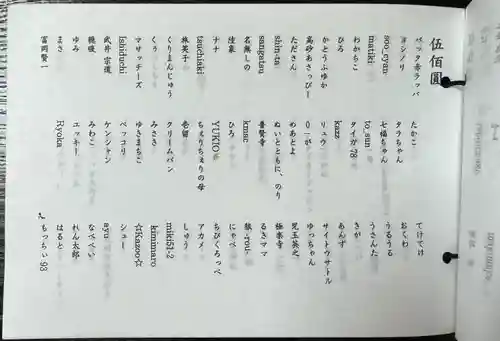 伍佰圓
ヨシノリ
soo_ryan
matiki
わかちこ
ひろ
かとうふゆか
高砂あさっぴー
たださん
shin-ta
sangatsu
名無しの
ナナ
tsuchiaki
林英子
くりまんじゅう
くぅ
マサッチーズ
Ishiduchi
武井 宗道
ゆみ
まさ
冨岡賢一
たかこ
タラちゃん
七福ちゃん
to_sun
タイガ78
kazz
リュウ
めあとよ
ぬいとともに、のり
普賢寺
kmac
ひろ
YUKIO
ちぇりちぇりの母
壱留
クリームパン
みさき
ゆきまちこ
ペッコリ
ケンシャン
みわこ
ユッキー
Ryoka
てけてけ
おくわ
うるうる
うさんた
きが
あんず
サイトウサトル
ゆっちゃん
児玉英之
極楽寺
るきママ
狼-rou-
にゃべ
ちびくろっぺ
アカメ
しゅう
miki51-2
kinimaro
☆Kazoo☆
シュー
ayu
なべべい
れん太郎
はると
もっちぃ93